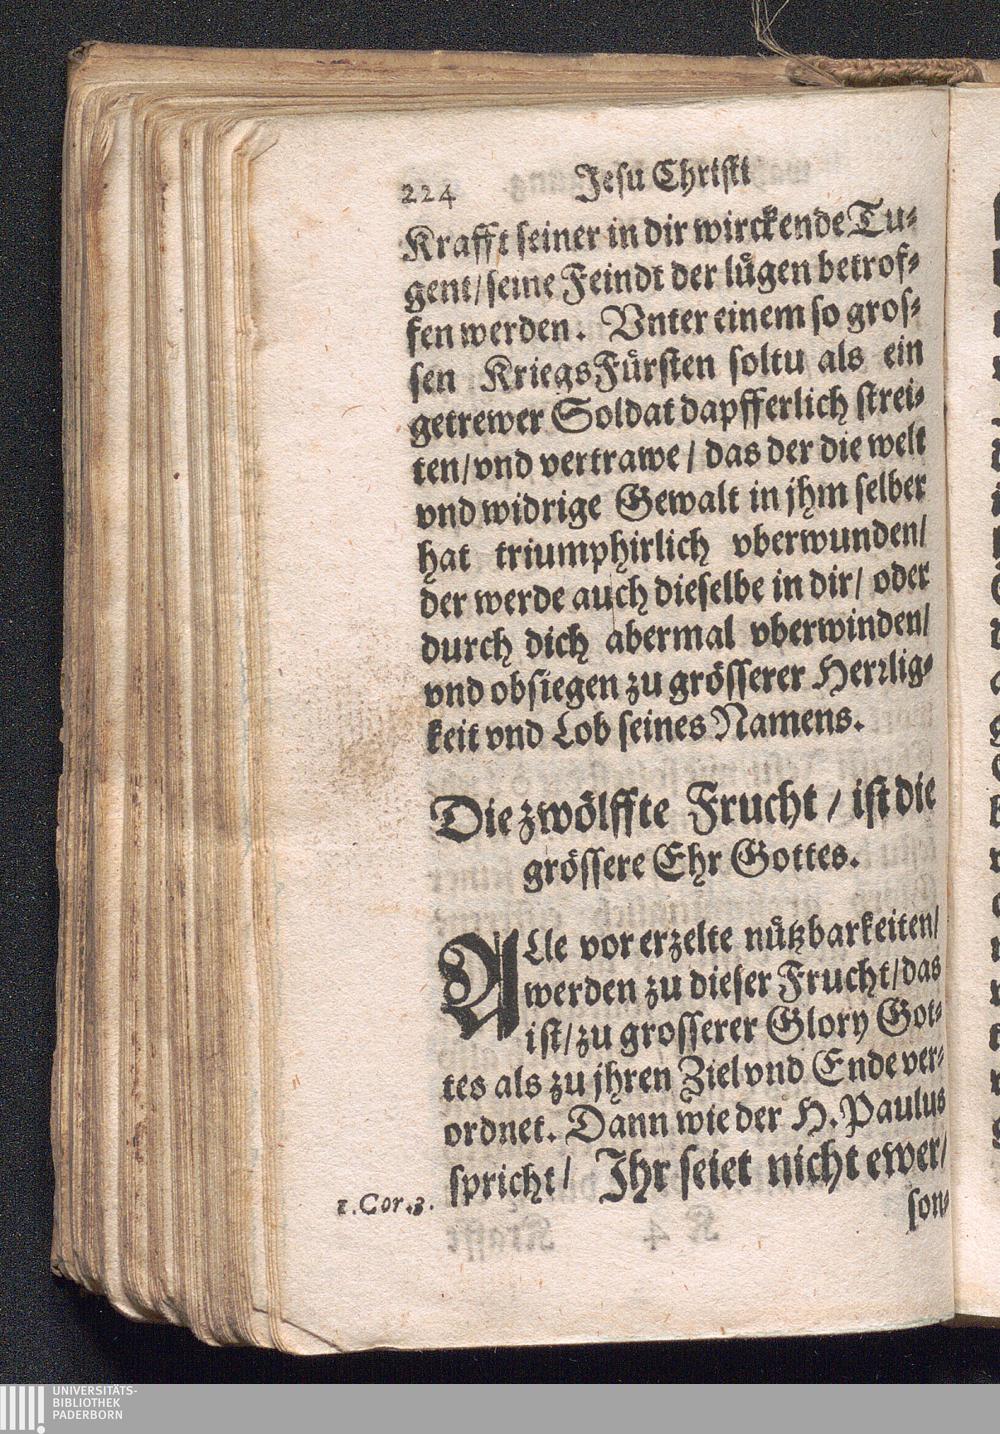 224 Jesu Christi
Krafft seiner in dir wirckende Tu-
gent/ seine Feindt der lůgen betrof-
fen werden. Vnter einem so gros-
sen KriegsFůrsten soltu als ein
getrewer Soldat dapfferlich strei-
ten/ vnd vertrawe/ das der die welt
vnd widrige Gewalt in jhm selber
hat triumphirlich vberwunden/
der werde auch dieselbe in dir/ oder
durch dich abermal vberwinden/
vnd obsiegen zu grösserer Herrlig-
keit vnd Lob seines Namens.
Die zwölffte Frucht / ist die
grössere Ehr Gottes.
ALle vor erzelte nůtzbarkeiten/
werden zu dieser Frucht/ das
ist/ zu grosserer Glory Got-
tes als zu jhren Ziel vnd Ende ver-
ordnet. Dann wie der H. Paulus
spricht/ Ihr seiet nicht ewer/
1. Cor. 3.
son-
UNIVERSITÄTS-
BIBLIOTHEK
PADERBORN